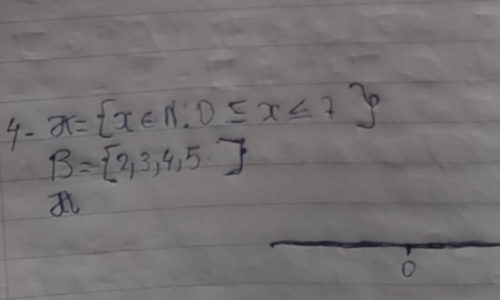 4- A={x∈N:0≤x≤7}
B={2,3,4,5}
A
0